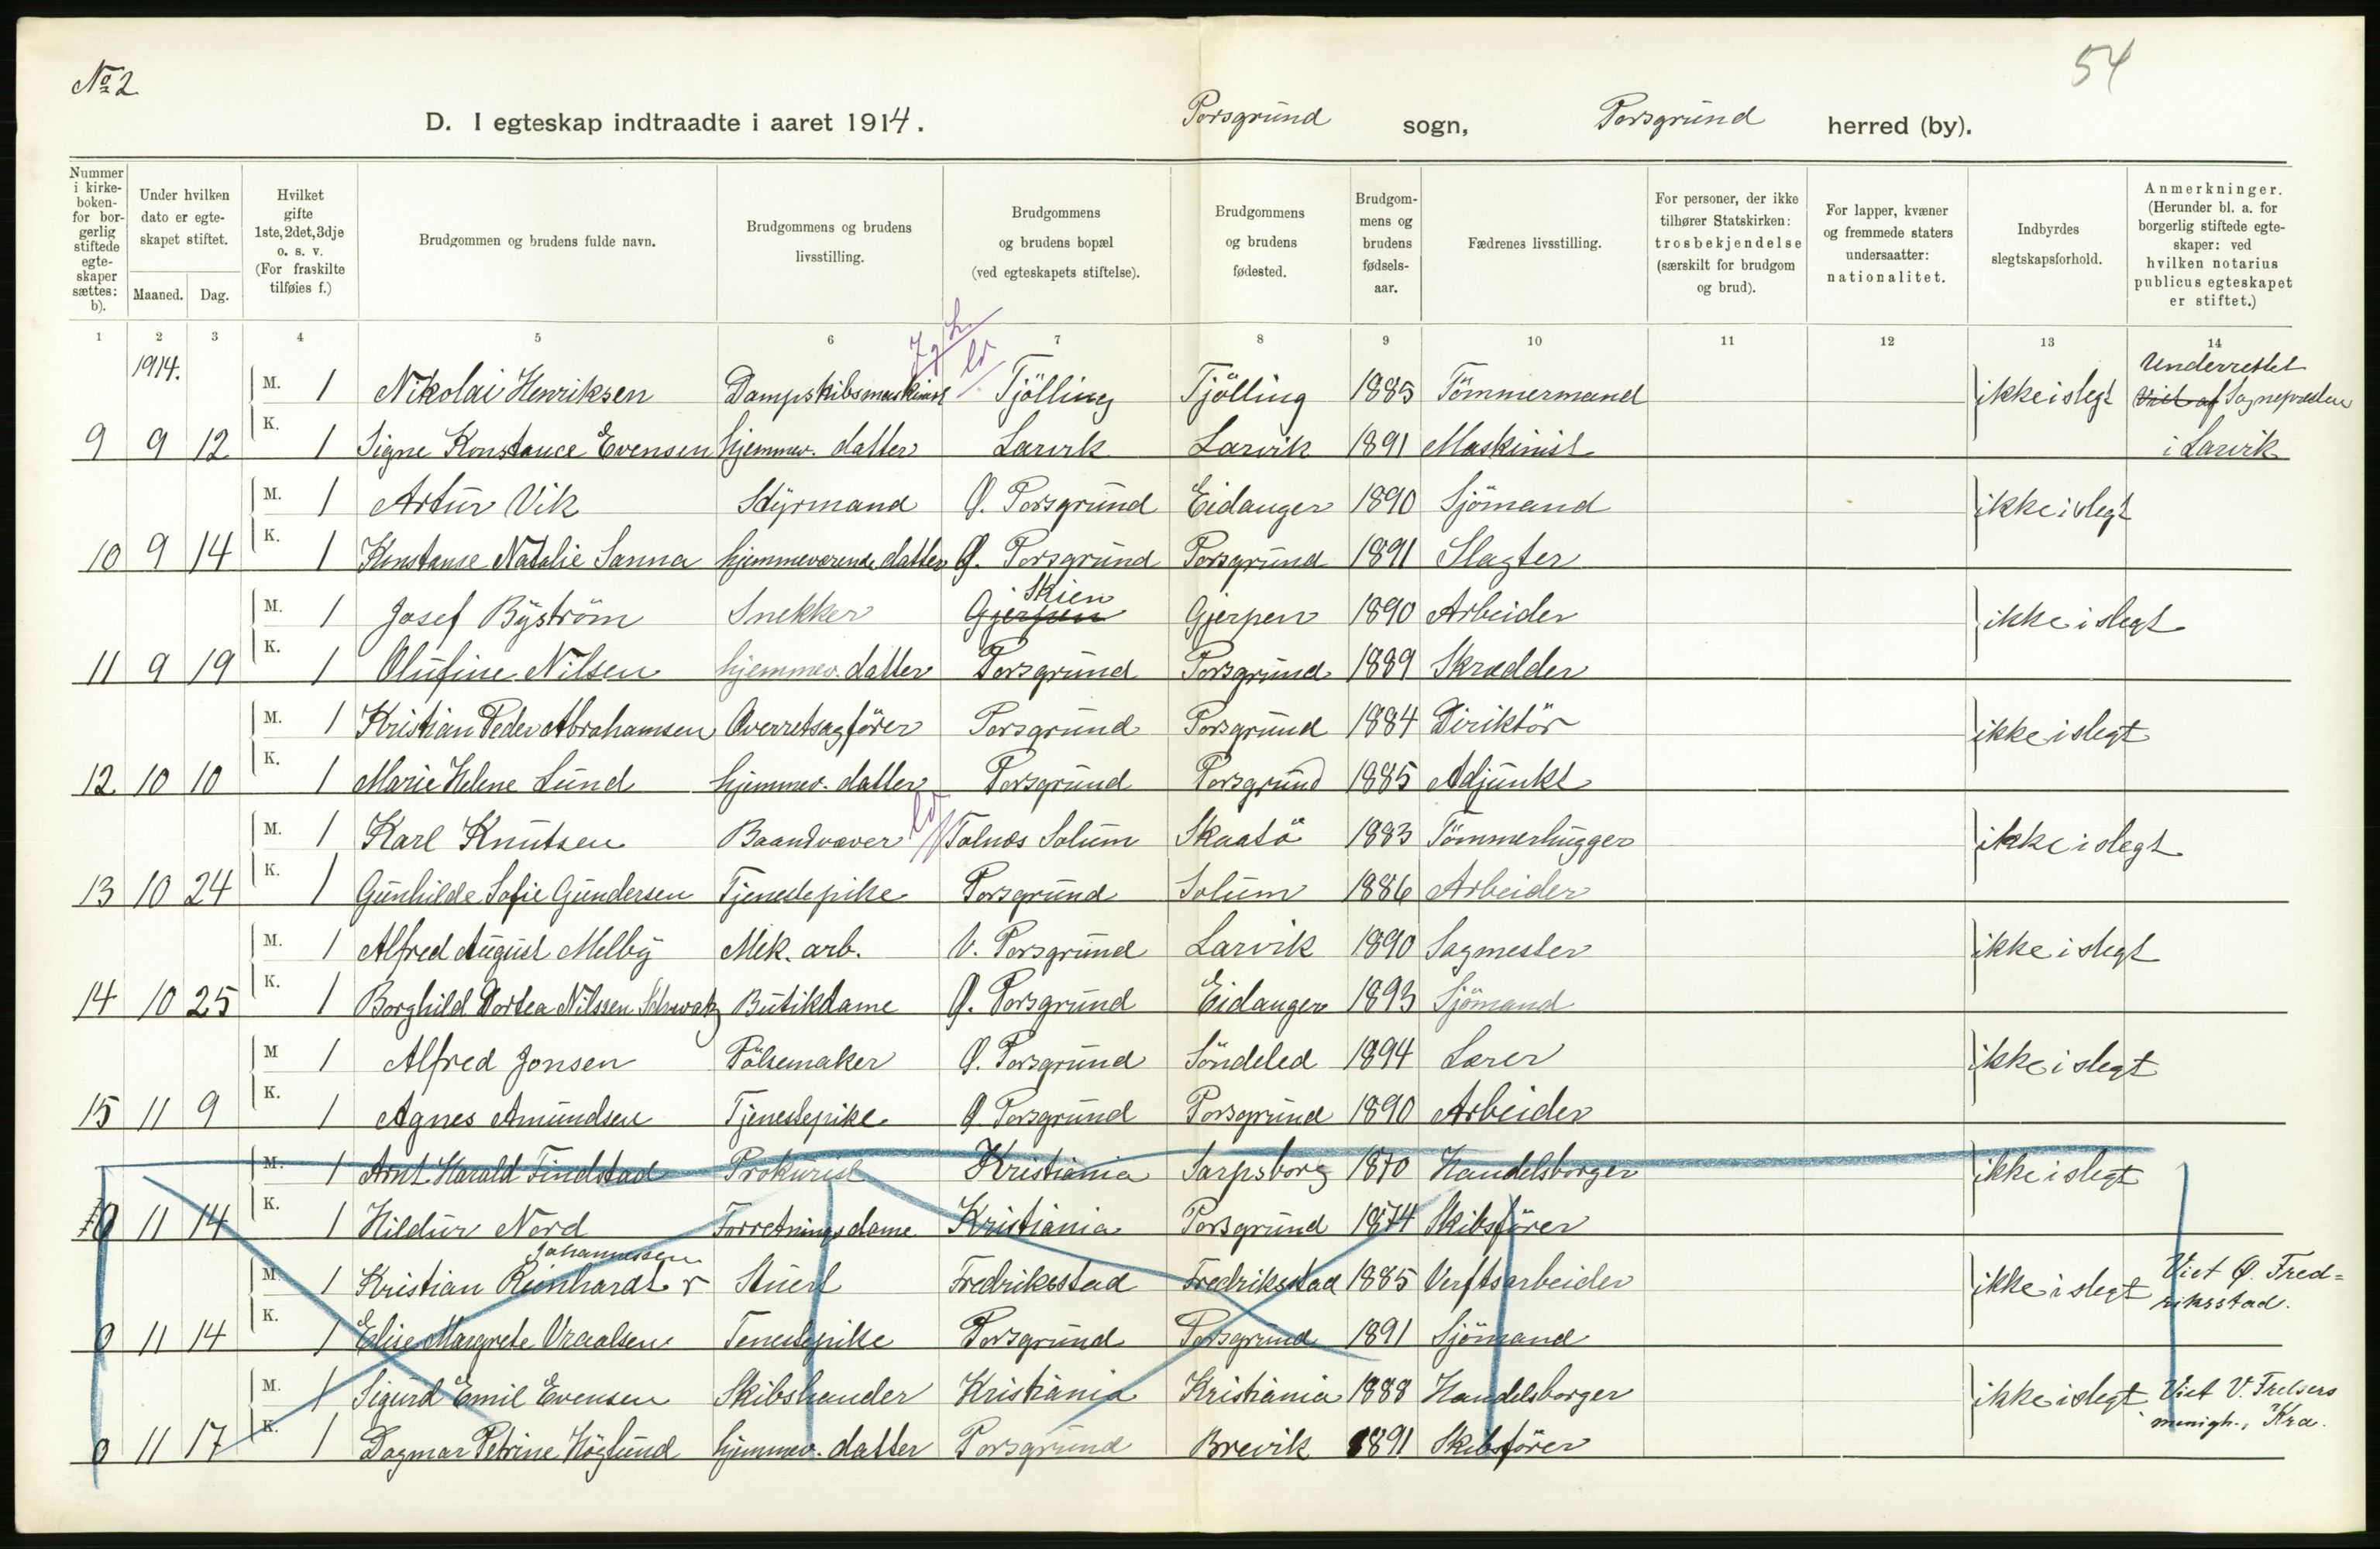 No 2
54
D. I egteskap indtraadte i aaret 1914. Porsgrund sogn, Porsgrund herred (by).
Nummer i kirkeboken- for borgerlig stiftede egteskaper sættes: b).
Under hvilken dato er egteskapet stiftet.
Maaned. Dag.
Hvilket gifte 1ste, 2det, 3dje o. s. v. (For fraskilte tilføies f.)
Brudgommen og brudens fulde navn.
Brudgommens og brudens livsstilling.
Brudgommens og brudens bopæl (ved egteskapets stiftelse).
Brudgommens og brudens fødested.
Brudgommens og brudens fødselsaar.
Fædrenes livsstilling.
For personer, der ikke tilhører Statskirken: trosbekjendelse (særskilt for brudgom og brud).
For lapper, kvæner og fremmede staters undersaatter: nationalitet.
Indbyrdes slegtskapsforhold.
Anmerkninger. (Herunder bl. a. for borgerlig stiftede egteskaper: ved hvilken notarius publicus egteskapet er stiftet.)
1 2 3 4 5 6 7 8 9 10 11 12 13 14
1914. Underrettet
M. 1 Nikolai Henriksen Dampskibsmaskinist Tjölling Tjölling 1885 Tömmermand ikke i slegt Viet af Sognepresten
9 9 12 K. 1 Signe Konstance Evensen hjemmev. datter Larvik Larvik 1891 Maskinist i Larvik
M. 1 Artur Vik Styrmand Ø. Porsgrund Eidanger 1890 Sjömand ikke i slegt
10 9 14 K. 1 Konstanse Natalie Sanna hjemmeværende datter Ø. Porsgrund Porsgrund 1891 Slagter
M. 1 Josef Byström Snekker Gjerpen Skien Gjerpen 1890 Arbeider ikke i slegt
11 9 19 K. 1 Olufine Nilsen hjemmev. datter Porsgrund Porsgrund 1889 Skrædder
M. 1 Kristian Peder Abrahamsen Overretsagförer Porsgrund Porsgrund 1884 Diriktör ikke i slegt
12 10 10 K. 1 Marie Helene Lund hjemmev. datter Porsgrund Porsgrund 1885 Adjunkt
M. 1 Karl Knutsen Baandvæver Tolnes Solum Skaatö 1883 Tömmerhugger ikke i slegt
13 10 24 K. 1 Gunhilde Sofie Gundersen Tjenestepike Porsgrund Solum 1886 Arbeider
M. 1 Alfred August Melby Mek. arb. V. Porsgrund Larvik 1890 Sagmester ikke i slegt
14 10 25 K. 1 Borghild Dortea Nilssen Schwatz Butikdame Ø. Porsgrund Eidanger 1893 Sjömand
M 1 Alfred Jonsen Pölsemaker Ø. Porsgrund Söndeled 1894 Lærer ikke i slegt
15 11 9 K. 1 Agnes Amundsen Tjenestepike Ø Porsgrund Porsgrund 1890 Arbeider
M. 1 Arnt Harald Findstad Prokurist Kristiania Sarpsborg 1870 Handelsborger ikke i slegt
0 11 14 K. 1 Hildur Nord Forretningsdame Kristiania Porsgrund 1874 Skibsförer
Johannessen
M. 1 Kristian Reinhardt Stuert Fredriksstad Fredriksstad 1885 Verftsarbeider ikke i slegt Viet Ø. Fred=
riksstad.
0 11 14 K. 1 Elise Margrete Vraalsen Tenestepike Porsgrund Porsgrund 1891 Sjömand
M. 1 Sigurd Emil Evensen Skibshandler Kristiania Kristiania 1888 Handelsborger ikke i slegt Viet V. Frelsers
menigh., Kra.
0 11 17 K. 1 Dagmar Petrine Höglund hjemmev. datter Porsgrund Brevik 1891 Skibsförer